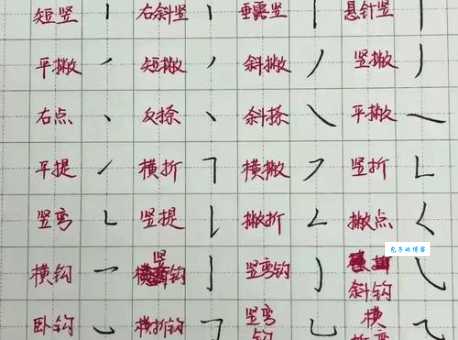 短竖 右斜竖 垂露竖 悬针竖
平撇 短撇 斜撇 竖撇
右点 反捺 斜捺 平撇
平提 横折 横撇 竖折
竖弯 竖提 撇折 撇点
横钩 竖钩 竖弯钩 斜钩
卧钩 横折钩 竖弯钩 横折弯